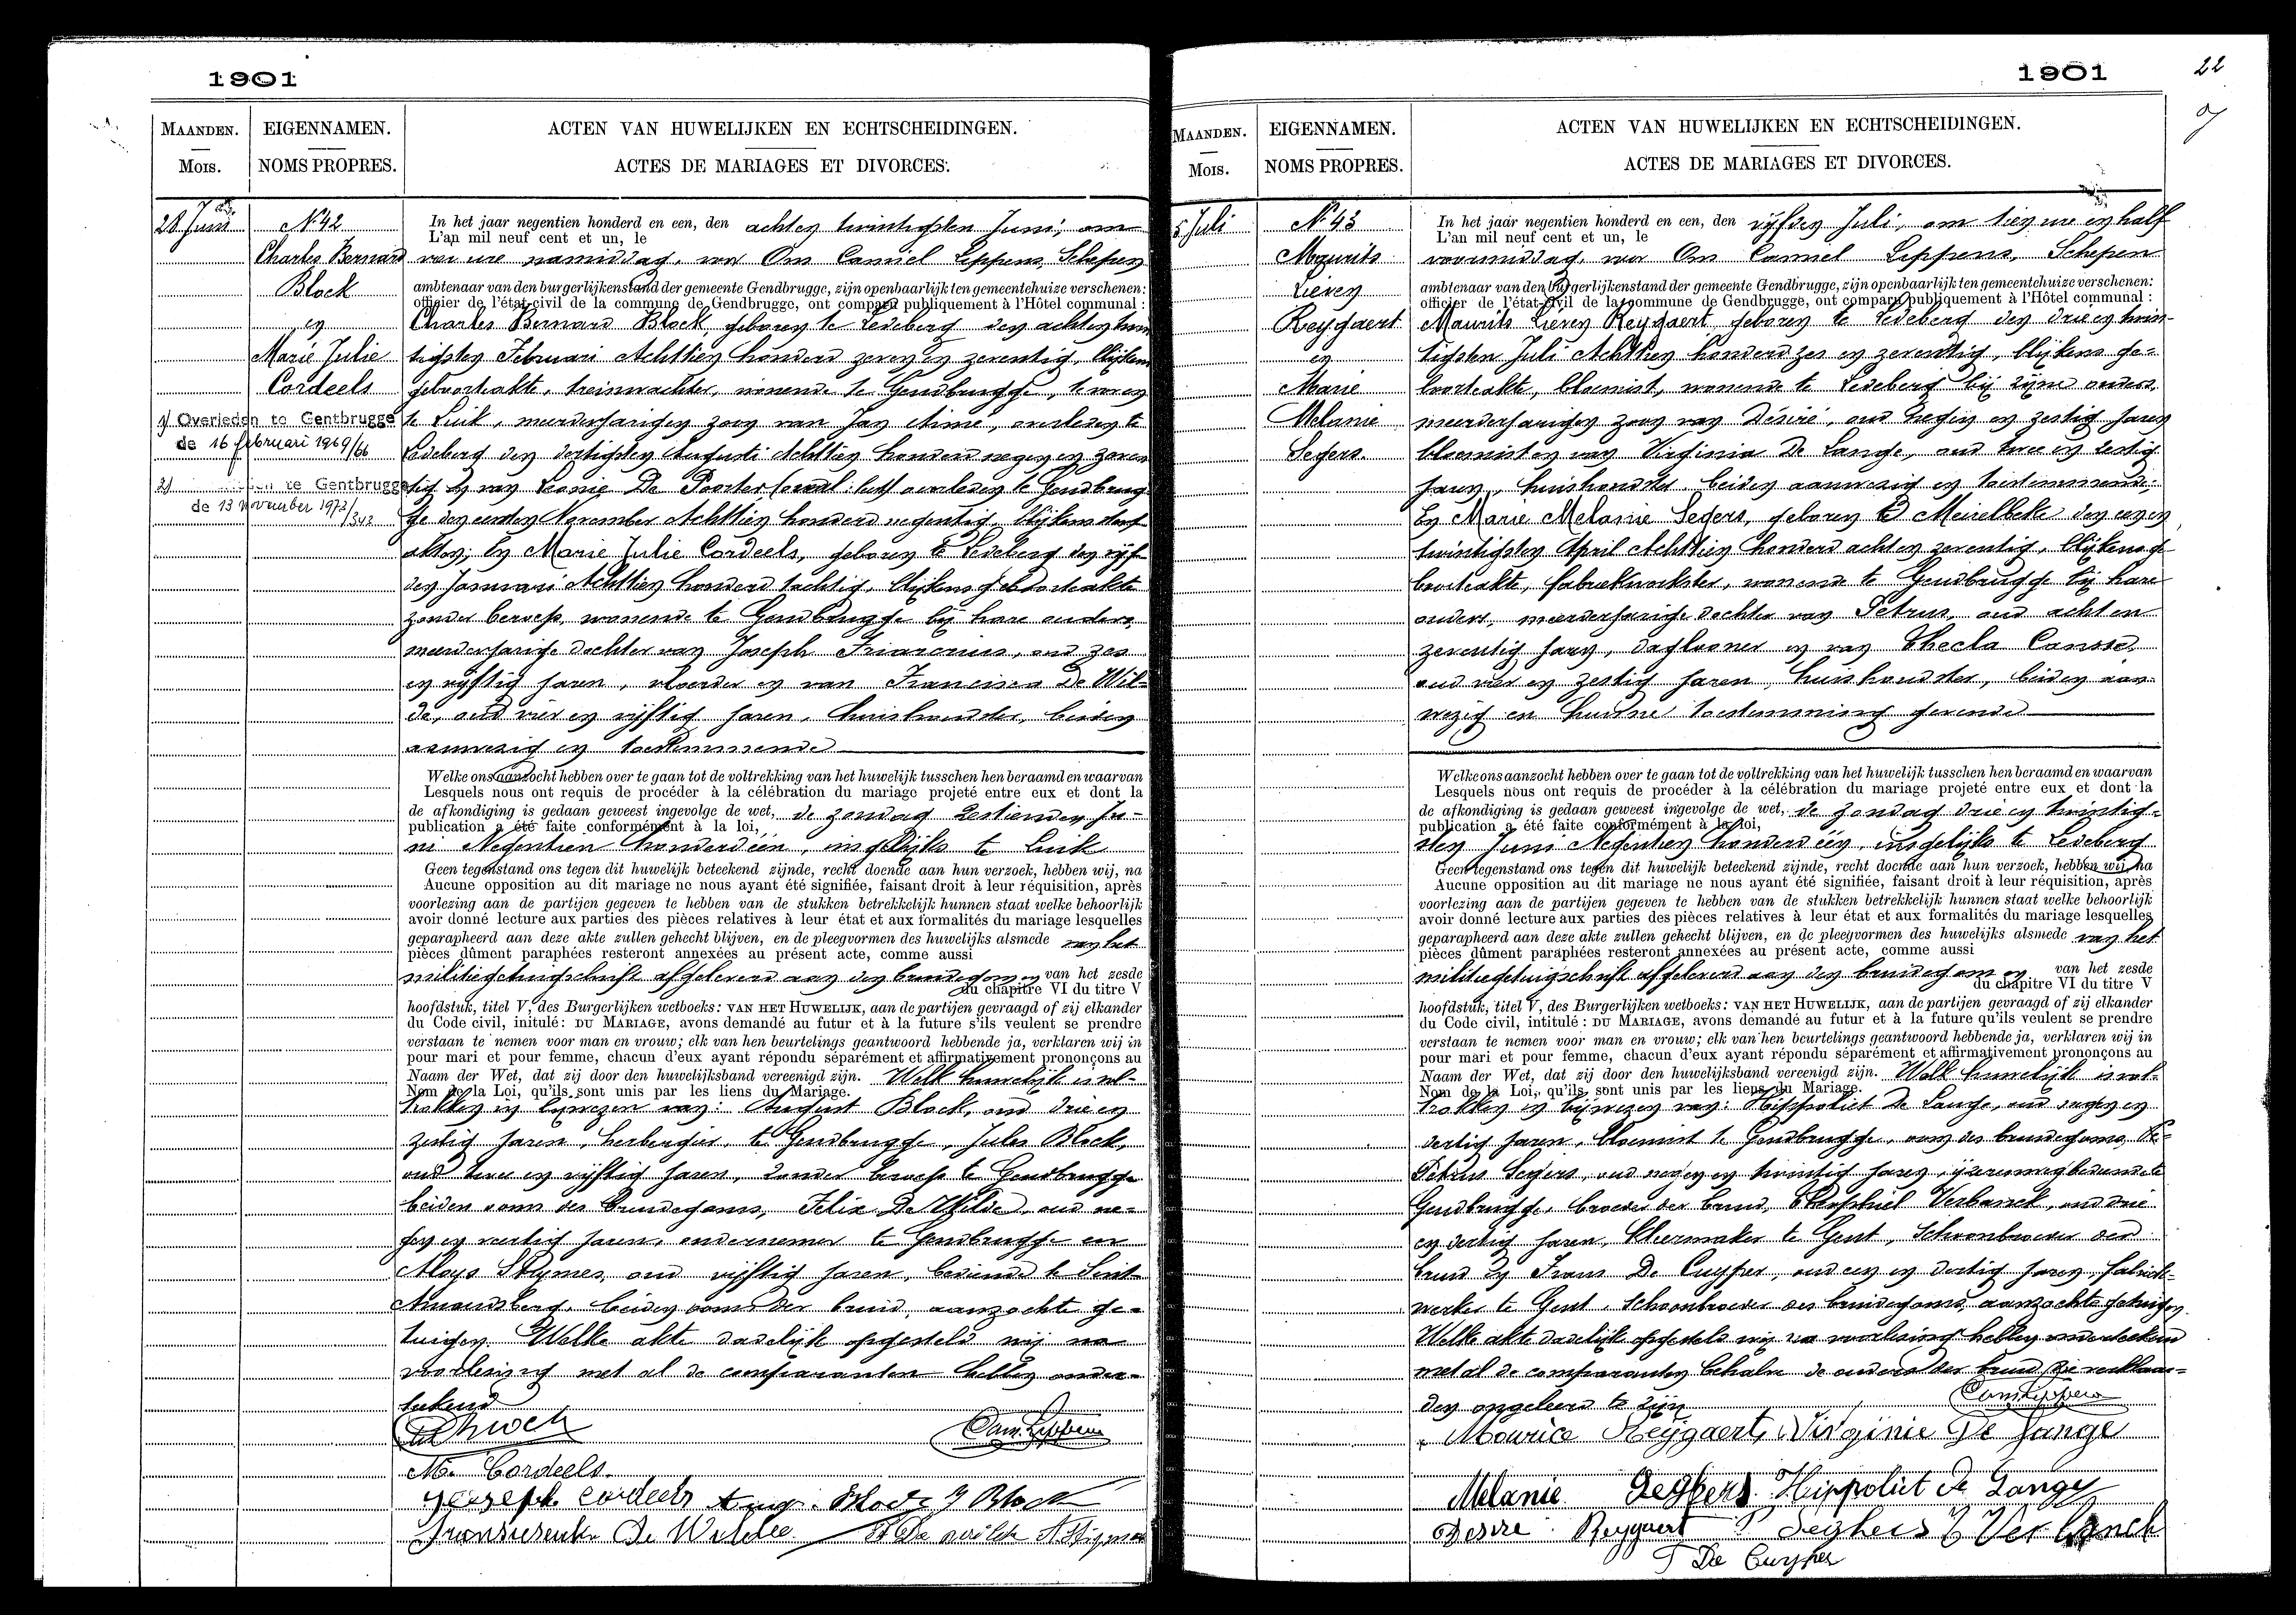 1901
MAANDEN.
Mois.
EIGENNAMEN.
NOMS PROPRES.
ACTEN VAN HUWELIJKEN EN ECHTSCHEIDINGEN.
ACTES DE MARIAGES ET DIVORCES.
28 Juni
N° 42
Charles Bernard
Block
en
Marie Julie
Cordeels
1) Overleden te Gentbrugge
de 16 februari 1969/66
2) te Gentbrugge
de 13 November 1972/342
In het jaar negentien honderd en een, den achten twintigsten Juni, om
L'an mil neuf cent et un, le
vier ure namiddag, voor Ons Camiel Leppens, Schepen
ambtenaar van den burgerlijkenstand der gemeente Gendbrugge, zijn openbaarlijk ten gemeentehuize verschenen:
officier de l'état-civil de la commune de Gendbrugge, ont comparu publiquement à l'Hôtel communal :
Charles Bernard Block, geboren te Ledeberg den achtentwin
tigsten Februari Achttien honderd zeven en zeventig, blijkens
geboorteakte, treinwachter, wonende te Gendbrugge, te voren
te Luik, meerderjarigen zoon van Jan Aimé, overleden te
Ledeberg den dertigsten Augusti Achttien honderd negen en zeven
tig en van Leonie De Poorter overleden te Gendbrug
ge den eersten November Achttien honderd negentig, blijkens sterf
akten; En Marie Julie Cordeels, geboren te Ledeberg den vijf
den Januari Achttien honderd tachtig, blijkens geboorteakte
zonder beroep, wonende te Gendbrugge bij hare ouders,
meerderjarige dochter van Joseph oud zes
en vijftig jaren, vloerder en van Francisca De Wil-
de, oud vier en vijftig jaren, huishoudster, beiden
aanwezig en toestemmende
Welke ons aanzocht hebben over te gaan tot de voltrekking van het huwelijk tusschen hen beraamd en waarvan
Lesquels nous ont requis de procéder à la célébration du mariage projeté entre eux et dont la
de afkondiging is gedaan geweest ingevolge de wet, de zondag zestienden Ju-
publication a été faite conformément à la loi,
ni Negentien honderd een, insgelijks te Luik
Geen tegenstand ons tegen dit huwelijk beteekend zijnde, recht doende aan hun verzoek, hebben wij, na
Aucune opposition au dit mariage ne nous ayant été signifiée, faisant droit à leur réquisition, après
voorlezing aan de partijen gegeven te hebben van de stukken betrekkelijk hunnen staat welke behoorlijk
avoir donné lecture aux parties des pièces relatives à leur état et aux formalités du mariage lesquelles
geparapheerd aan deze akte zullen gehecht blijven, en de pleegvormen des huwelijks alsmede van het
pièces dûment paraphées resteront annexées au présent acte, comme aussi
militiegetuigschrift afgeleverd aan den bruidegom en van het zesde
du chapitre VI du titre V
hoofdstuk, titel V, des Burgerlijken wetboeks: VAN HET HUWELIJK, aan de partijen gevraagd of zij elkander
du Code civil, initulé: DU MARIAGE, avons demandé au futur et à la future s'ils veulent se prendre
verstaan te nemen voor man en vrouw; elk van hen beurtelings geantwoord hebbende ja, verklaren wij in
pour mari et pour femme, chacun d'eux ayant répondu séparément et affirmativement prononçons au
Naam der Wet, dat zij door den huwelijksband vereenigd zijn. Welk huwelijk is vol-
Nom de la Loi, qu'ils sont unis par les liens du Mariage.
trokken in bijwezen van: August Block, oud drie en
zestig jaren, herbergier, te Gendbrugge, Jules Block,
oud twee en vijftig jaren, zonder beroep te Gendbrugge
beiden ooms des bruidegoms, Felix De Wilde, oud ne-
gen en veertig jaren, ondernemer te Gendbrugge en
Aloys Stymes, oud vijftig jaren, bediende te Sint
Amandsberg, beiden ooms der bruid, aanzochte ge-
tuigen. Welke akte dadelijk opgesteld wij na
voorlezing met al de comparanten hebben onder-
teekend
Cam. Leppens
M. Cordeels.
Joseph Cordeels Aug. Block J Block
De Wilde F De Wilde A Stymes
1901
22
MAANDEN.
Mois.
EIGENNAMEN.
NOMS PROPRES.
ACTEN VAN HUWELIJKEN EN ECHTSCHEIDINGEN.
ACTES DE MARIAGES ET DIVORCES.
5 Juli
N° 43
Maurits
Lieven
Reygaert
en
Marie
Melanie
Segers.
In het jaar negentien honderd en een, den vijfden Juli, om tien ure en half
L'an mil neuf cent et un, le
voormiddag, voor Ons Camiel Leppens, Schepen
ambtenaar van den burgerlijkenstand der gemeente Gendbrugge, zijn openbaarlijk ten gemeentehuize verschenen:
officier de l'état-civil de la commune de Gendbrugge, ont comparu publiquement à l'Hôtel communal :
Maurits Lieven Reygaert, geboren te Ledeberg den drie en twin-
tigsten Juli Achttien honderd zes en zeventig, blijkens ge-
boorteakte, bloemist, wonende te Ledeberg bij zijne ouders,
meerderjarigen zoon van Désiré, oud negen en zestig jaren
bloemist en van Virginia De Lange, oud twee en zestig
jaren, huishoudster, beiden aanwezig en toestemmende;
En Marie Melanie Segers, geboren te Meirelbeke den een en
twintigsten April Achttien honderd acht en zeventig, blijkens ge-
boorteakte, fabriekwerkster, wonende te Gendbrugge bij hare
ouders, meerderjarige dochter van Petrus, oud acht en
zeventig jaren, daglooner en van Thecla Cansse,
oud vier en zestig jaren, huishoudster, beiden aan-
wezig en hunne toestemming gevende
Welke ons aanzocht hebben over te gaan tot de voltrekking van het huwelijk tusschen hen beraamd en waarvan
Lesquels nous ont requis de procéder à la célébration du mariage projeté entre eux et dont la
de afkondiging is gedaan geweest ingevolge de wet, de zondag drie en twintig-
publication a été faite conformément à la loi,
sten Juni Negentien honderd een, insgelijks te Ledeberg
Geen tegenstand ons tegen dit huwelijk beteekend zijnde, recht doende aan hun verzoek, hebben wij, na
Aucune opposition au dit mariage ne nous ayant été signifiée, faisant droit à leur réquisition, après
voorlezing aan de partijen gegeven te hebben van de stukken betrekkelijk hunnen staat welke behoorlijk
avoir donné lecture aux parties des pièces relatives à leur état et aux formalités du mariage lesquelles
geparapheerd aan deze akte zullen gehecht blijven, en de pleegvormen des huwelijks alsmede van het
pièces dûment paraphées resteront annexées au présent acte, comme aussi
militiegetuigschrift afgeleverd aan den bruidegom en van het zesde
du chapitre VI du titre V
hoofdstuk, titel V, des Burgerlijken wetboeks: VAN HET HUWELIJK, aan de partijen gevraagd of zij elkander
du Code civil, intitulé: DU MARIAGE, avons demandé au futur et à la future qu'ils veulent se prendre
verstaan te nemen voor man en vrouw; elk van hen beurtelings geantwoord hebbende ja, verklaren wij in
pour mari et pour femme, chacun d'eux ayant répondu séparément et affirmativement prononçons au
Naam der Wet, dat zij door den huwelijksband vereenigd zijn. Welk huwelijk is vol-
Nom de la Loi, qu'ils sont unis par les liens du Mariage.
trokken in bijwezen van: Hippoliet De Lange, oud negen en
dertig jaren, bloemist te Gendbrugge, oom des bruidegoms, Pe-
Petrus Segers, oud negen en twintig jaren, ijzerenwegbediende te
Gendbrugge, broeder der bruid, Theophiel Verbanck, oud drie
en dertig jaren, kleermaker te Gent, Schoonbroeder der
bruid en Frans De Cuyper, oud een en dertig jaren, fabriek-
werker te Gent, Schoonbroeder des bruidegoms, aanzochte getuigen.
Welke akte dadelijk opgesteld wij na voorlezing hebben onderteekend
met al de comparanten behalve de ouders der bruid die verklaar-
den ongeleerd te zijn
Cam. Leppens
Maurice Reygaert, Virginie De Lange
Melanie Seghers. Hippoliet De Lange
Desire Reygaert P Seghers T Verbanck
F De Cuyper